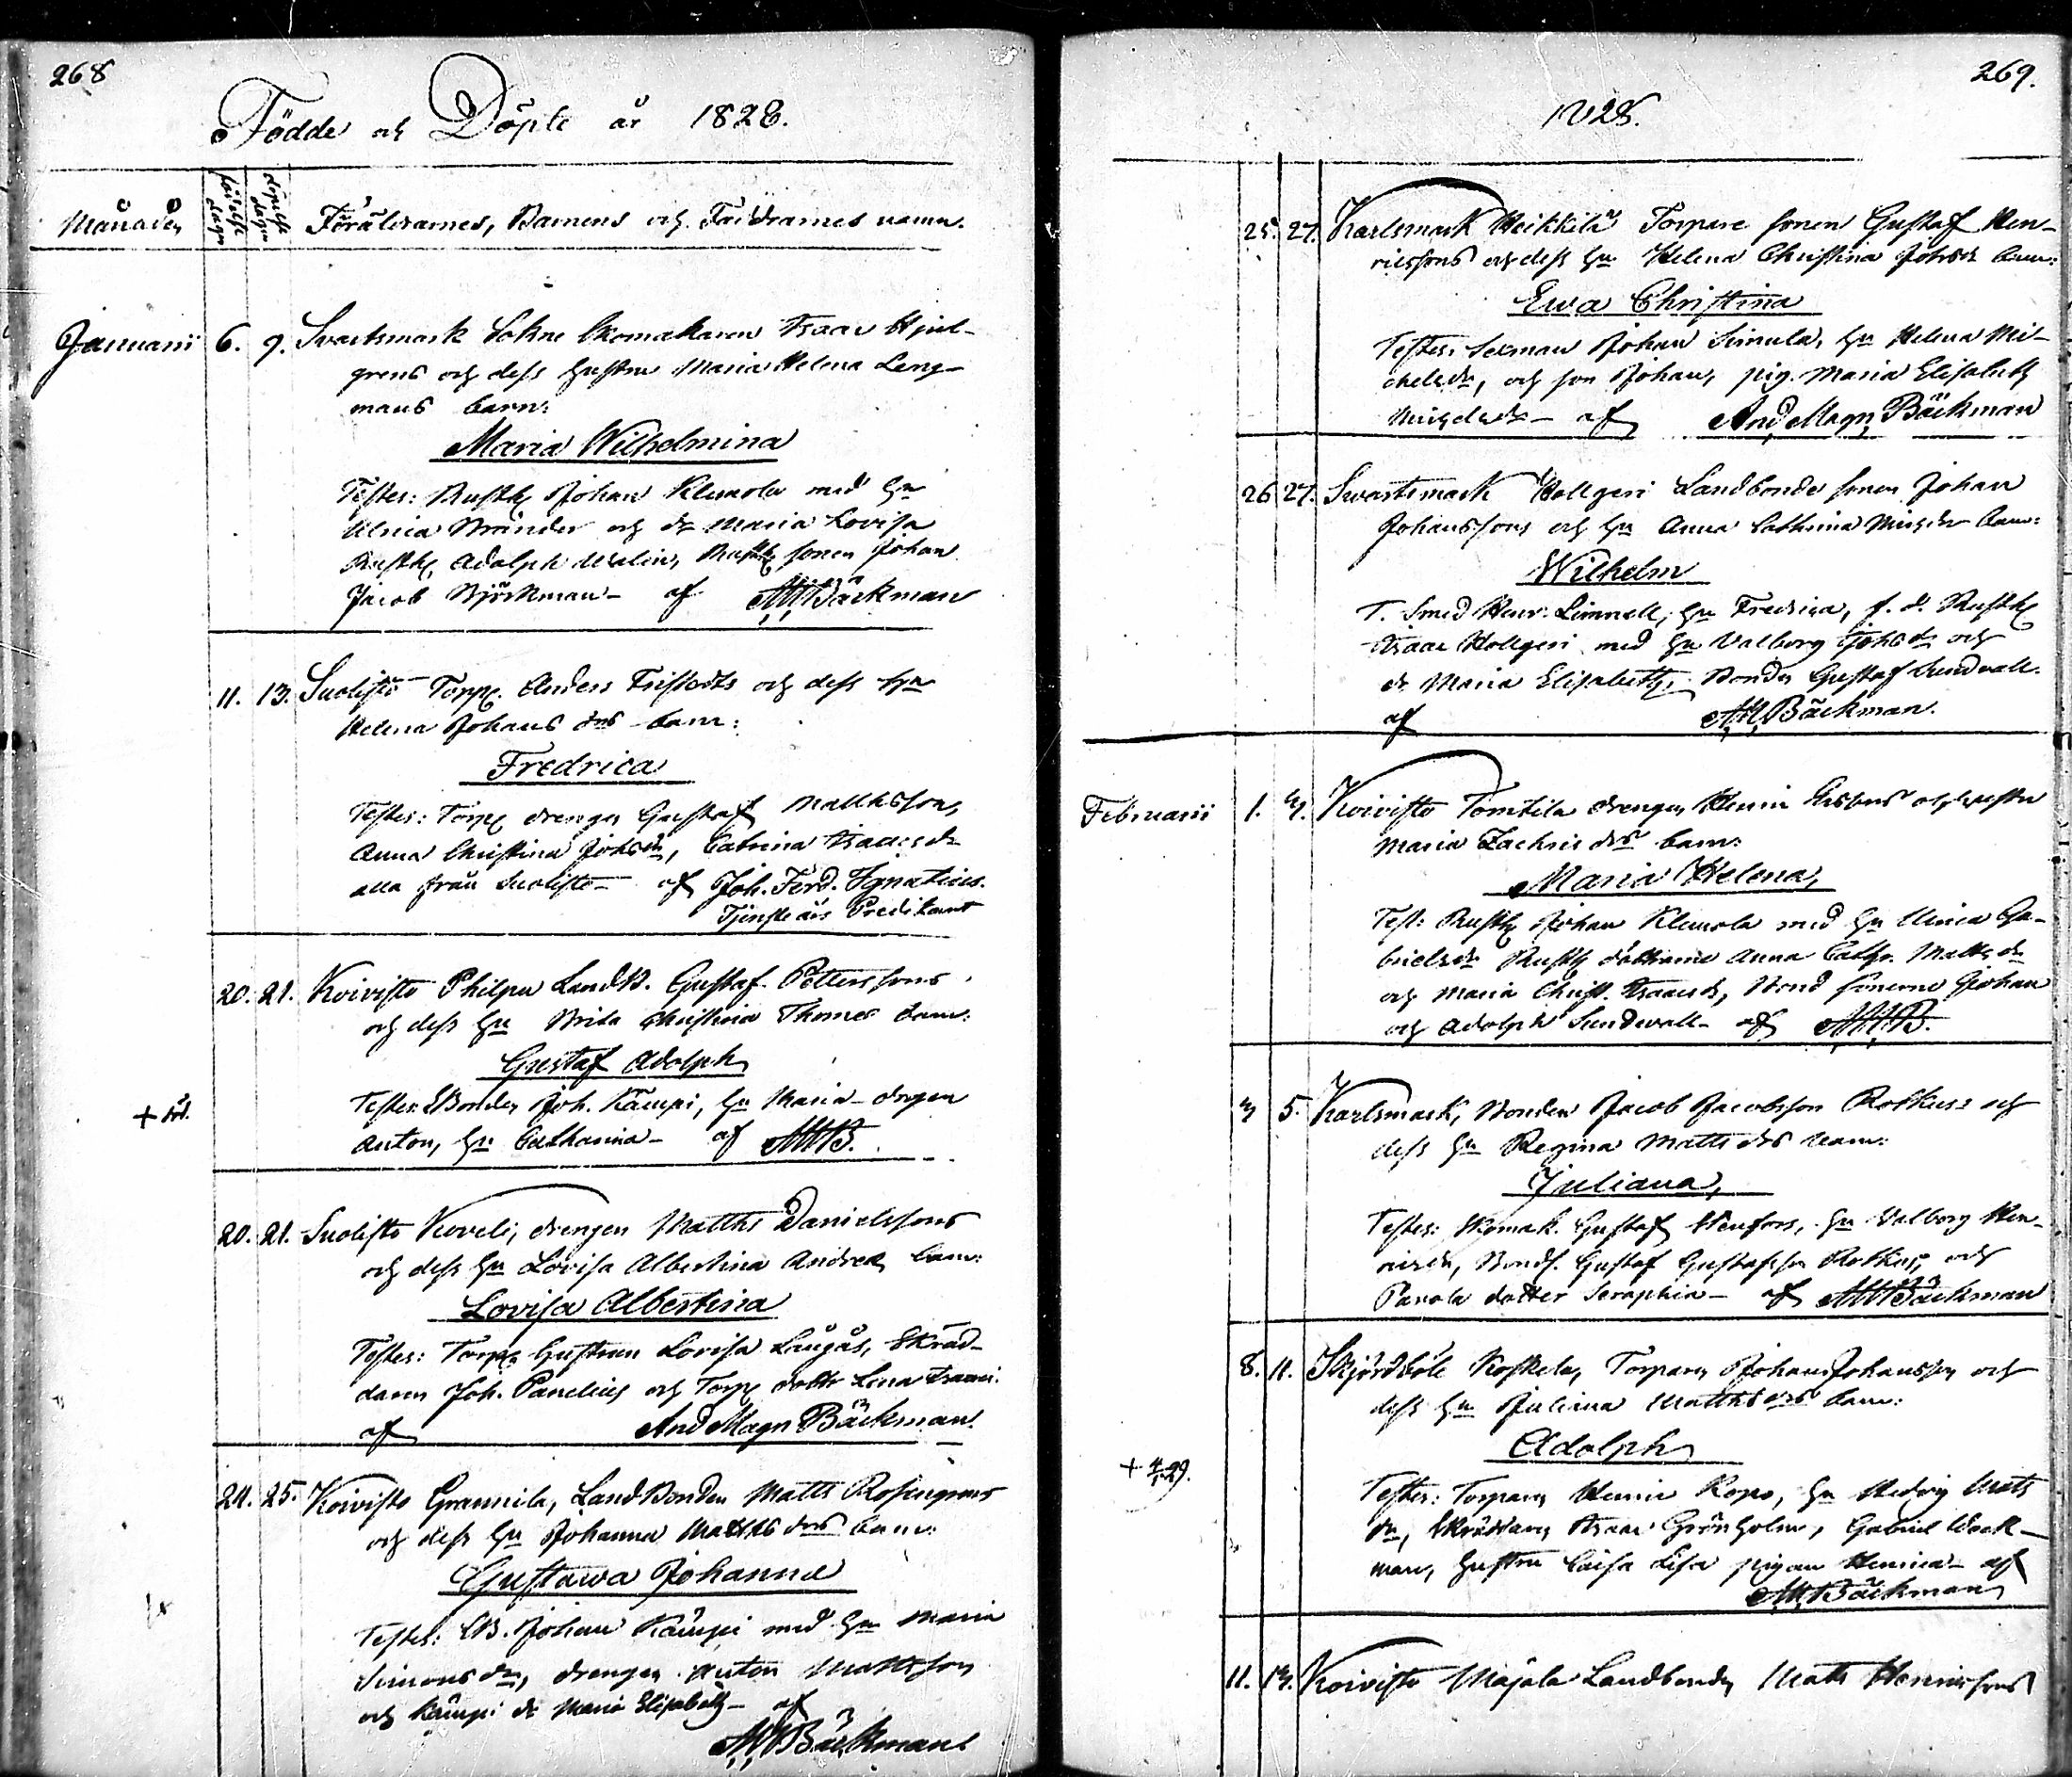 268
Födde och Döpte år 1828.
Månaden
födelse dagen
döpelse dagen
Föräldrarnes, Barnens och Faddrarnes namn.
Januarii 6. 9. Svartsmark Sokne Skomakaren Isaac Hjul-
grens och dess hustru Maria Helena Leng-
mans barn:
Maria Wilhelmina
Testes: Rusth Johan Klemola med hu
Ulrica Bränder och dr Maria Lovisa
Rusth Adolph Walin, Rusth sonen Johan
Jacob Björkman - af AMBäckman
11. 13. Suolisto Torp. Anders Fristedts och dess hu
Helena Johans drs barn:
Fredrica
Testes: Torp drengen Gustaf Matthsson,
Anna Christina Johsdr, Catrina Isaacsdr
alla från Suolisto - af Joh. Ferd. Ignatius.
Tjenste års Predikant
20. 21. Koivisto Philpu Landb. Gustaf Petterssons
och dess hu Brita Christina Thomae barn:
Gustaf Adolph
Testes: Bonden Joh. Kämpi, hu Maria - drgen
Anton, hu Catharina - af AMB.
20. 21. Suolisto Koveli, drengen Matths Danielssons
och dess hu Lovisa Albertina Andreae barn:
Lovisa Albertina
Testes: Torp. hustrun Lovisa Långås, Skräd-
daren Joh. Panelius och Torp dottr Lena Isaaci.
af And Magn Bäckman.
24. 25. Koivisto Grannila, LandBonden Matts Rosengrens
och dess hu Johanna Matths drs barn:
Gustawa Johanna
Testes: B. Johan Kämpi med hu Maria
Simons dr, drengen Anton Mattsson
och Kämpi dr Maria Elisabeth - af
AMBäckman
269.
1828.
25. 27. Karlsmark Heikkilä Torpare sonen Gustaf Hen-
ricssons och dess hu Helena Christina Johsdr barn:
Ewa Christina
Testes: Sexman Johan Simula, hu Helena Mi-
chelsdr, och son Johan, pig. Maria Elisabeth
Michelsdr - af And Magn Bäckman
26 27. Swartsmark Hollgeri Landbonde sonen Johan
Johanssons och hu Anna Cathrina Michsdr barn:
Wilhelm
T. Smed Henr. Limnell, hu Fredrica, f. d. Rusth
Isaac Hollgeri med hu Valborg Johsdr och
dr Maria Elisabeth, Bonden Gustaf Sundvall.
af AMBäckman.
Februarii 1. 3. Koivisto Tomtila drengen Henric och hustru
Maria Zachris drs barn:
Maria Helena,
Test: Rusth Johan Klemola med hu Ulrica Ga-
brielsdr Rusth döttrarne Anna Cathr. Mattsdr
och Maria Christ. Isaacsdr, Bond sönerne Johan
och Adolph Sundwall - af AMB.
3 5. Karlsmark, Bonden Jacob Jacobsson Rotkus och
dess hu Regina Matts drs barn:
Juliana,
Testes: Skomak. Gustaf Stenfors, hu Valborg Hen-
ricsdr, Bonds. Gustaf Gustafsson Rotkus, och
Panola dotter Seraphia - af AMBäckman
8. 11. Skjördböle Koskela, Torparen Johan Johansson och
dess hu Juliana Matths drs barn:
Adolph
+ 4/4 29.
Testes: Torparen Henric Ropo, hu Hedvig Mats
dr, Skräddaren Isaac Grönholm, Gabriel Weck-
man, hustru Caisa Lisa pigan Henrica - af
AMBäckman
11. 13. Koivisto Majala Landbonden Mats Henricssons